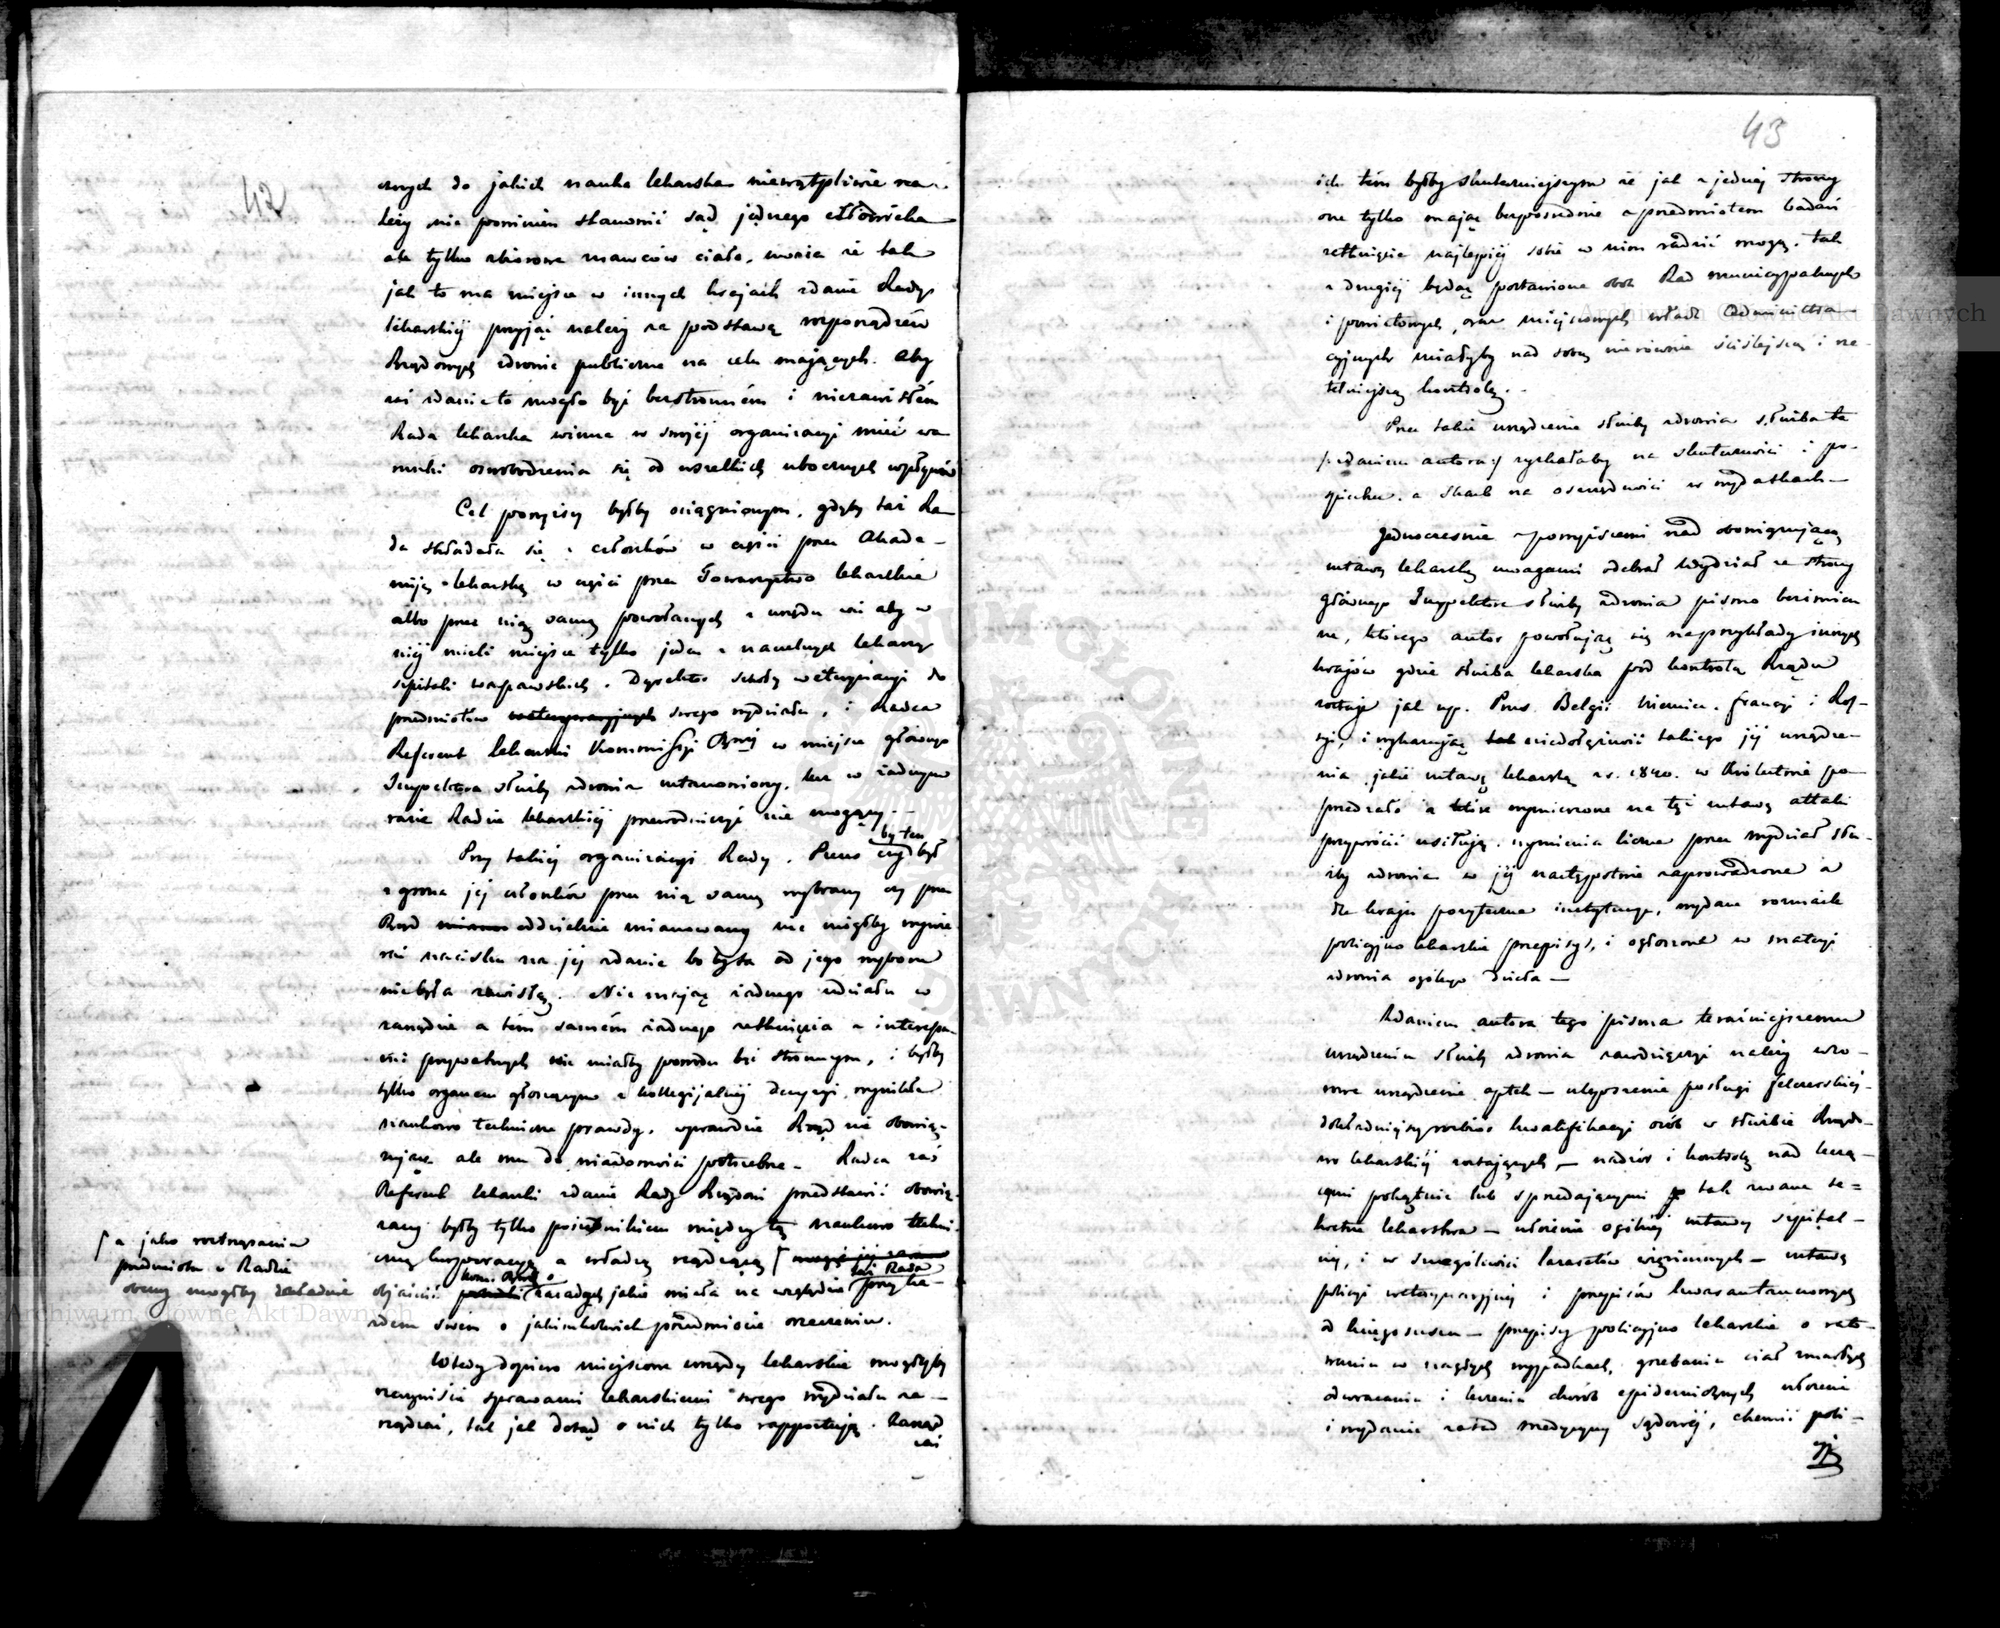 42
cznych do jakich nauka lekarska niewątpliwie na-
leży nie powinien stanowić sąd jednego człowieka
ale tylko zbiorowe znawców ciało, uważa że tak
jak to ma miejsce w innych krajach zdanie Rady
lekarskiej przyjąć należy za podstawę rozporządzeń
Rządowych zdrowie publiczne na celu mających. Aby
zaś zdanie to mogło być bezstronném i niezawisłém
Rada lekarska winna w swojéj organizacyi mieć wa-
runki oswobodzenia się od wszelkich ubocznych wpływów
Cel powyższy byłby osiągnionym, gdyby taż Ra-
da składała się z członków w części przez Akade-
miję lekarską w części przez Towarzystwo lekarskie
albo przez nią samą powołanych z urzędu zaś aby w
niéj mieli miejsce tylko jeden z naczelnych lekarzy
szpitali warszawskich. Dyrektor szkoły weterynaryi do
przedmiotów weterynaryjnych swego wydziału, i Radca
Referent lekarski Kommissyi Rząwéj w miejsce głównego
Inspektora służby zdrowia ustanowiony, lecz w żadnym
razie Radzie lekarskiéj przewodniczyć nie mogący.—
Przy takiéj organizacyi Rady. Prezes czyby ten był
z grona jéj członków przez nią samą wybrany czy przez
Rząd oddzielnie mianowany nie mógłby wywie-
rać nacisku na jéj zdanie bo była od jego wyboru
niebyła zawisłą. Nie mając żadnego udziału w
zarządzie a tém samém żadnego zetknięcia z interesa-
mi prywatnych nie miałby powodu być stronnym, i byłby
tylko organem głoszącym z kollegijalnéj decyzyi wynikłe
naukowo techniczne prawdy, wprawdzie Rząd nie obowią-
zujące ale mu do wiadomości potrzebne— Radca zaś
Referent lekarski zdanie Rady Rządowi przedstawić obowią-
zany byłby tylko pośrednikiem między tą naukowo techni-
czną korporacyą a władzą rządzącą [
[a jako roztrząsaniu
przedmiotu w Radzie
obecny mógłby dokładnie objaśnić Kom. Rząd. o zasadach jakie miała na względzie taż Rada przy ka-
żdem swem o jakimkolwiek przedmiocie orzeczeniu.
Wtedy dopiero miejscowe urzędy lekarskie mogłyby
rzeczywiście sprawami lekarskiemi swego wydziału za-
rządzać, tak jak dotąd o nich tylko rapportują. Zarząd
zaś
43
ich tém byłby skuteczniejszym że jak z jednéj strony
one tylko mając bezpośrednie z przedmiotem badań
zetknięcie najlepiéj sobie w nim radzić mogą, tak
z drugiéj będąc postawione obok Rad municypalnych
i powiatowych, oraz miejscowych władz Administra-
cyjnych miałyby nad sobą nierównie ściślejszą i rze-
telniejszą kontrolę.—
Przez takie urządzenie służby zdrowia służba ta
/:zdaniem autora:/ zyskałaby na skuteczności i po-
śpiechu, a skarb na oszczędności w wydatkach—
Jednocześnie z powyższemi nad obowiązującą
ustawą lekarską uwagami odebrał Wydział ze strony
głównego Inspektora służby zdrowia pismo bezimien-
ne, którego autor powołując się na przykłady innych
krajów gdzie służba lekarska pod kontrolą Rządu
zostaje jak np. Prus. Belgii. Niemiec. Francyi i Ros-
syi, i wykazując niedołężność takiego jéj urządze-
nia jakie ustawę lekarską z r. 1840. w Królestwie po-
przedzało a które wymierzone na tęż ustawę attaki
przywrócić usiłują. wymienia liczne przez Wydział słu-
żby zdrowia w jéj następstwie zaprowadzone a
dla kraju pożyteczne instytucye, wydane rozmaite
policyjno lekarskie przepisy, i ogłoszone w materyi
zdrowia ogólnego dzieła—
Zdaniem autora tego pisma teraźniejszemu
urządzeniu służby zdrowia zawdzięczyć należy wzo-
rowe urządzenie aptek— ulepszenie posługi felczerskiéj-
dokładniejszy rozbiór kwalifikacyi osób w służbie Rządo-
wo lekarskiéj zostających,— nadzór i kontrolę nad leczą-
cymi pokątnie lub sprzedającymi tak zwane se=
kretne lekarstwa— ułożenie ogólnéj ustawy szpital-
néj, i w szczególności lazaretów więziennych— ustawę
policyi weterynaryjnéj i przepisów kwarantannowych
od księgosuszu— przepisy policyjno lekarskie o rato-
waniu w nagłych wypadkach, grzebaniu ciał zmarłych
odwracaniu i leczeniu chorób epidemicznych ułożenie
i wydanie zasad medycyny sądowéj, chemii poli-
cyj